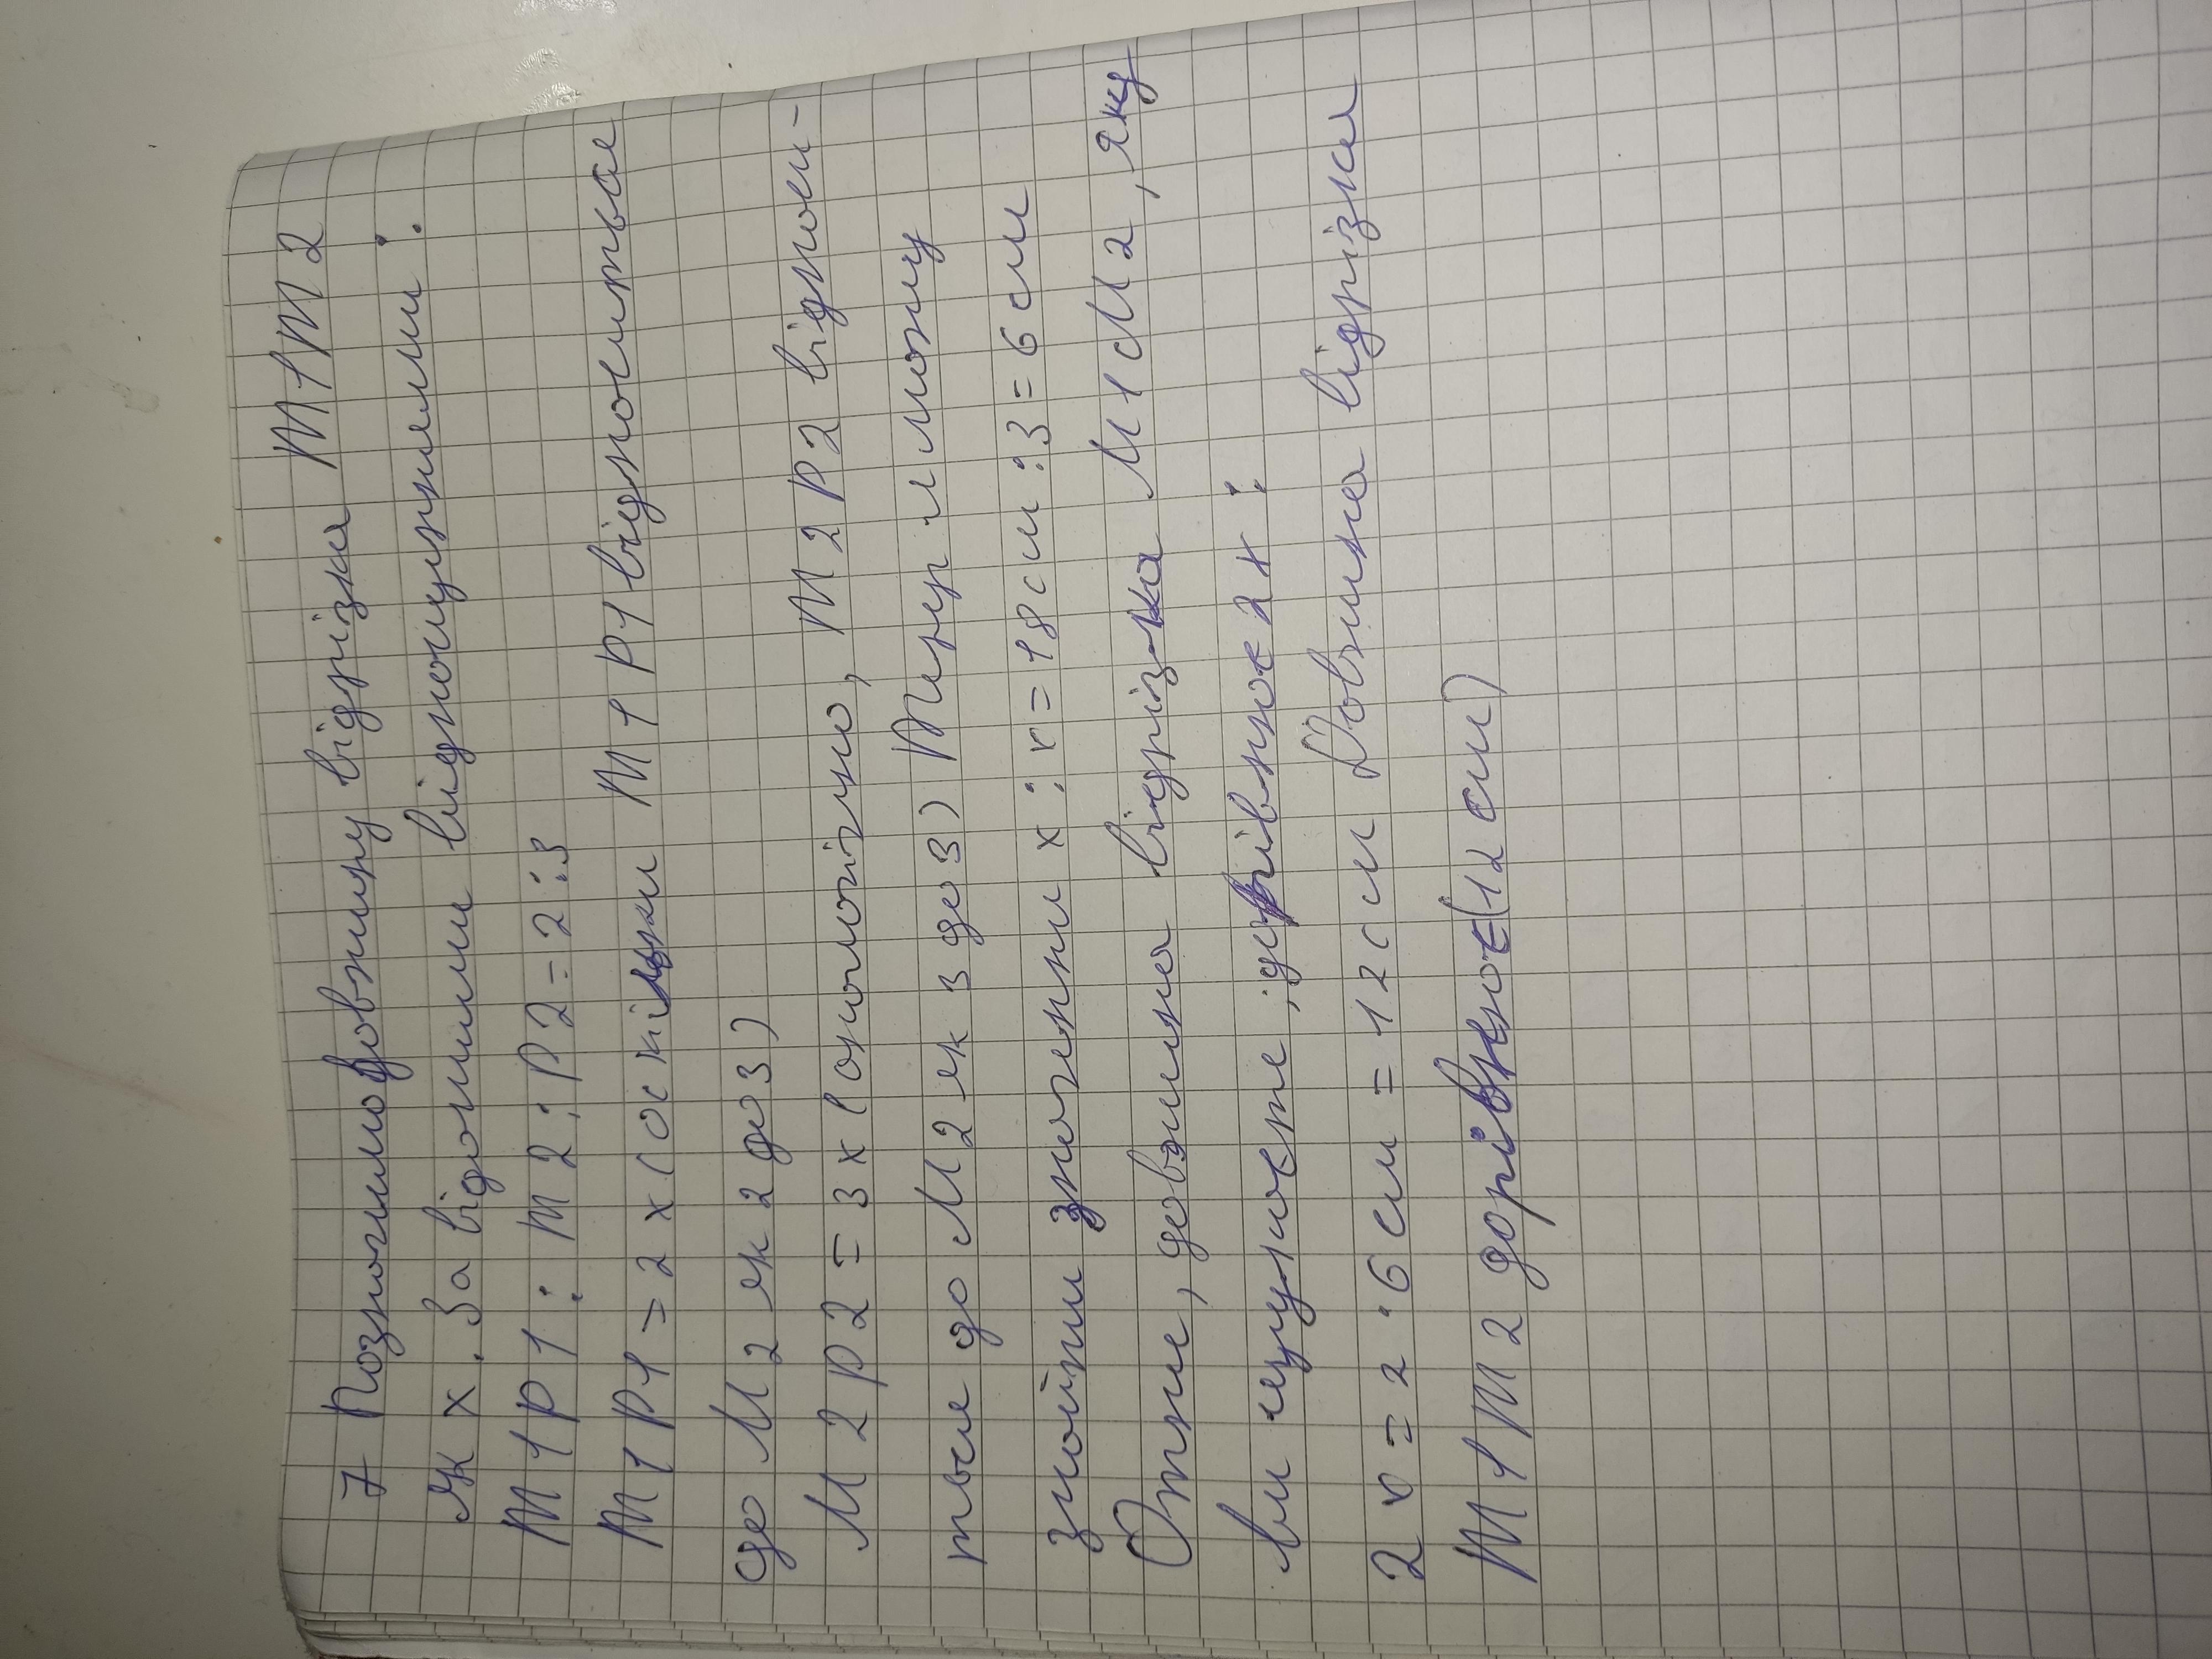 7 Позначимо довжину відрізка М1М2
як х. За відомими відношеннями:
М1Р1: М2: Р2=2:3
М1Р1=2х(оскільки М1Р1 відноситься
до М2 як 2 до3)
М2Р2=3х(аналогічно, М2Р2 відноси-
ться до М2 як 3 до3) Тепер ми можу
знайти значення х: х=18см:3=6см
Отже, довжина відрізка М1М2, яку
ви шукаєте, дорівнює 2х:
2х=2·6см=12см Довжина відрізка
М1М2 дорівнює(12см)